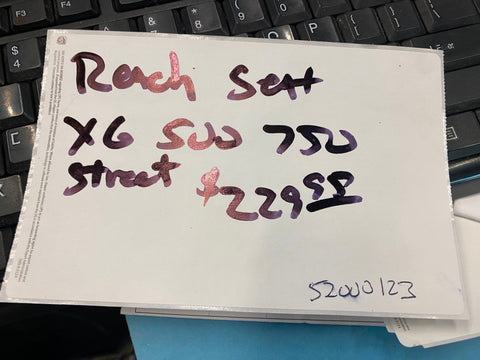 Reach Seat
XG 500 750
Street $229.99
52000123